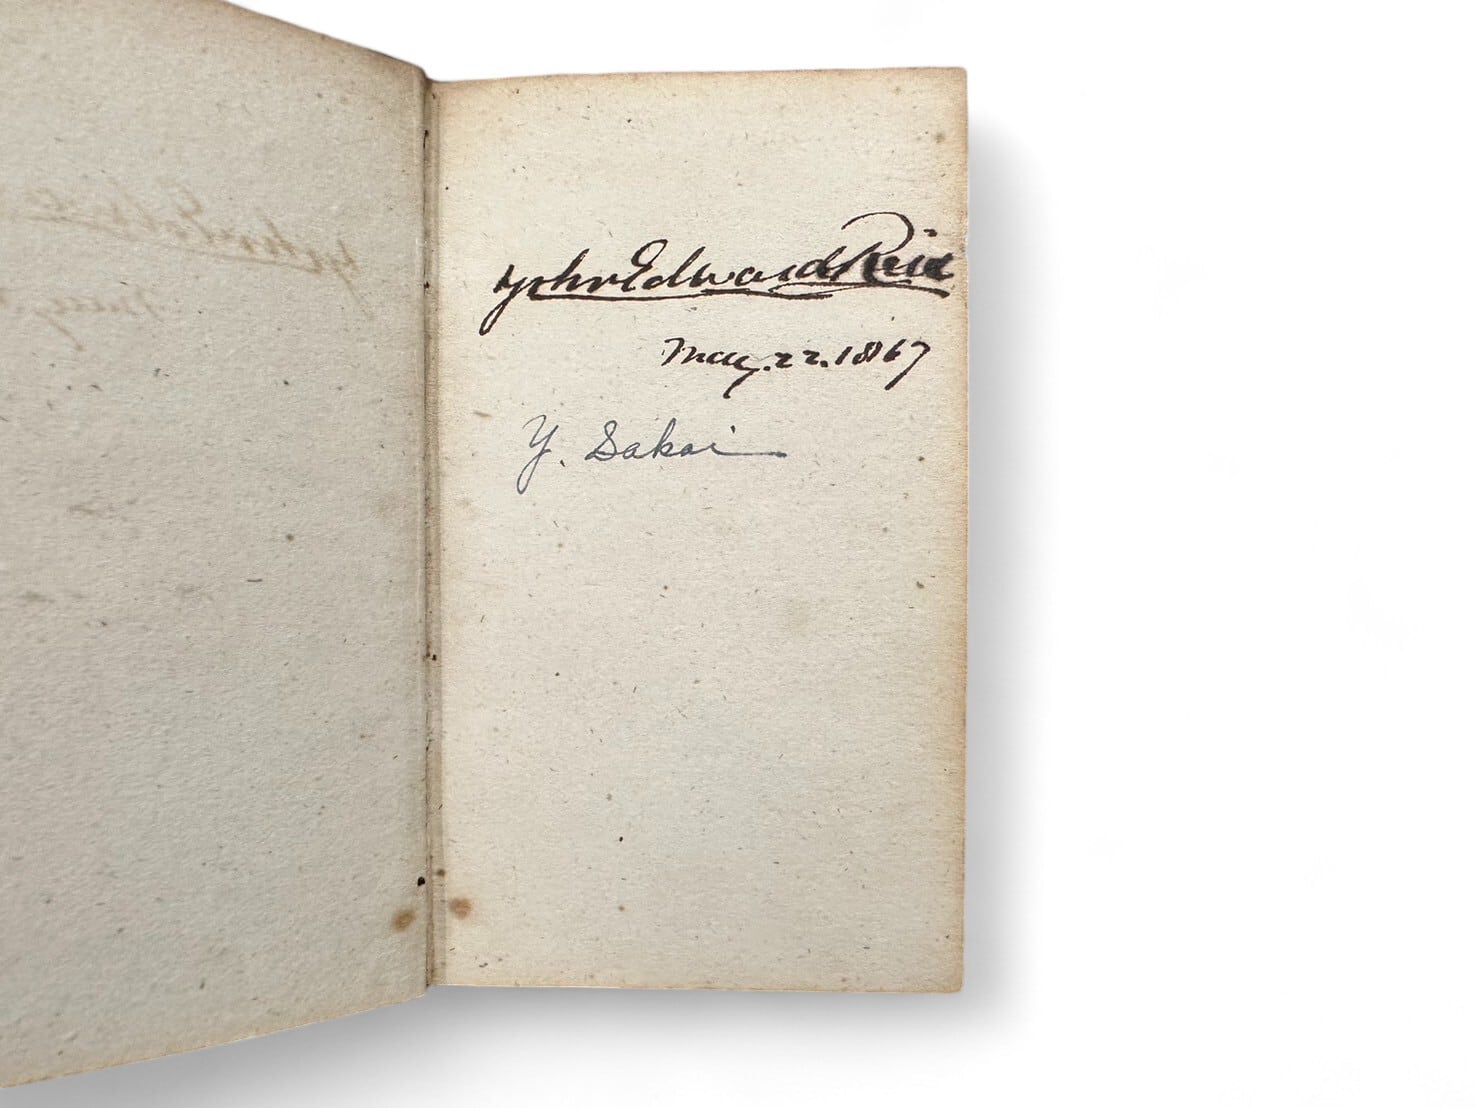 John Edward Reid
May. 22. 1867
Y. Sakai